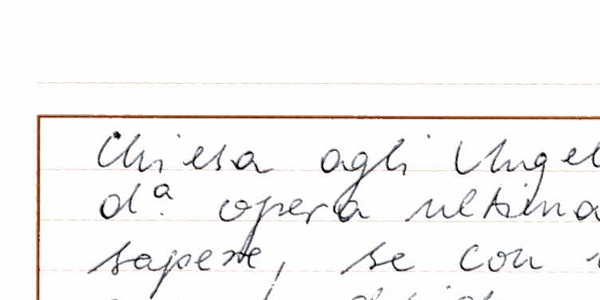 Chiesa agli Angel
d.ª opera ultima
sapere, se con